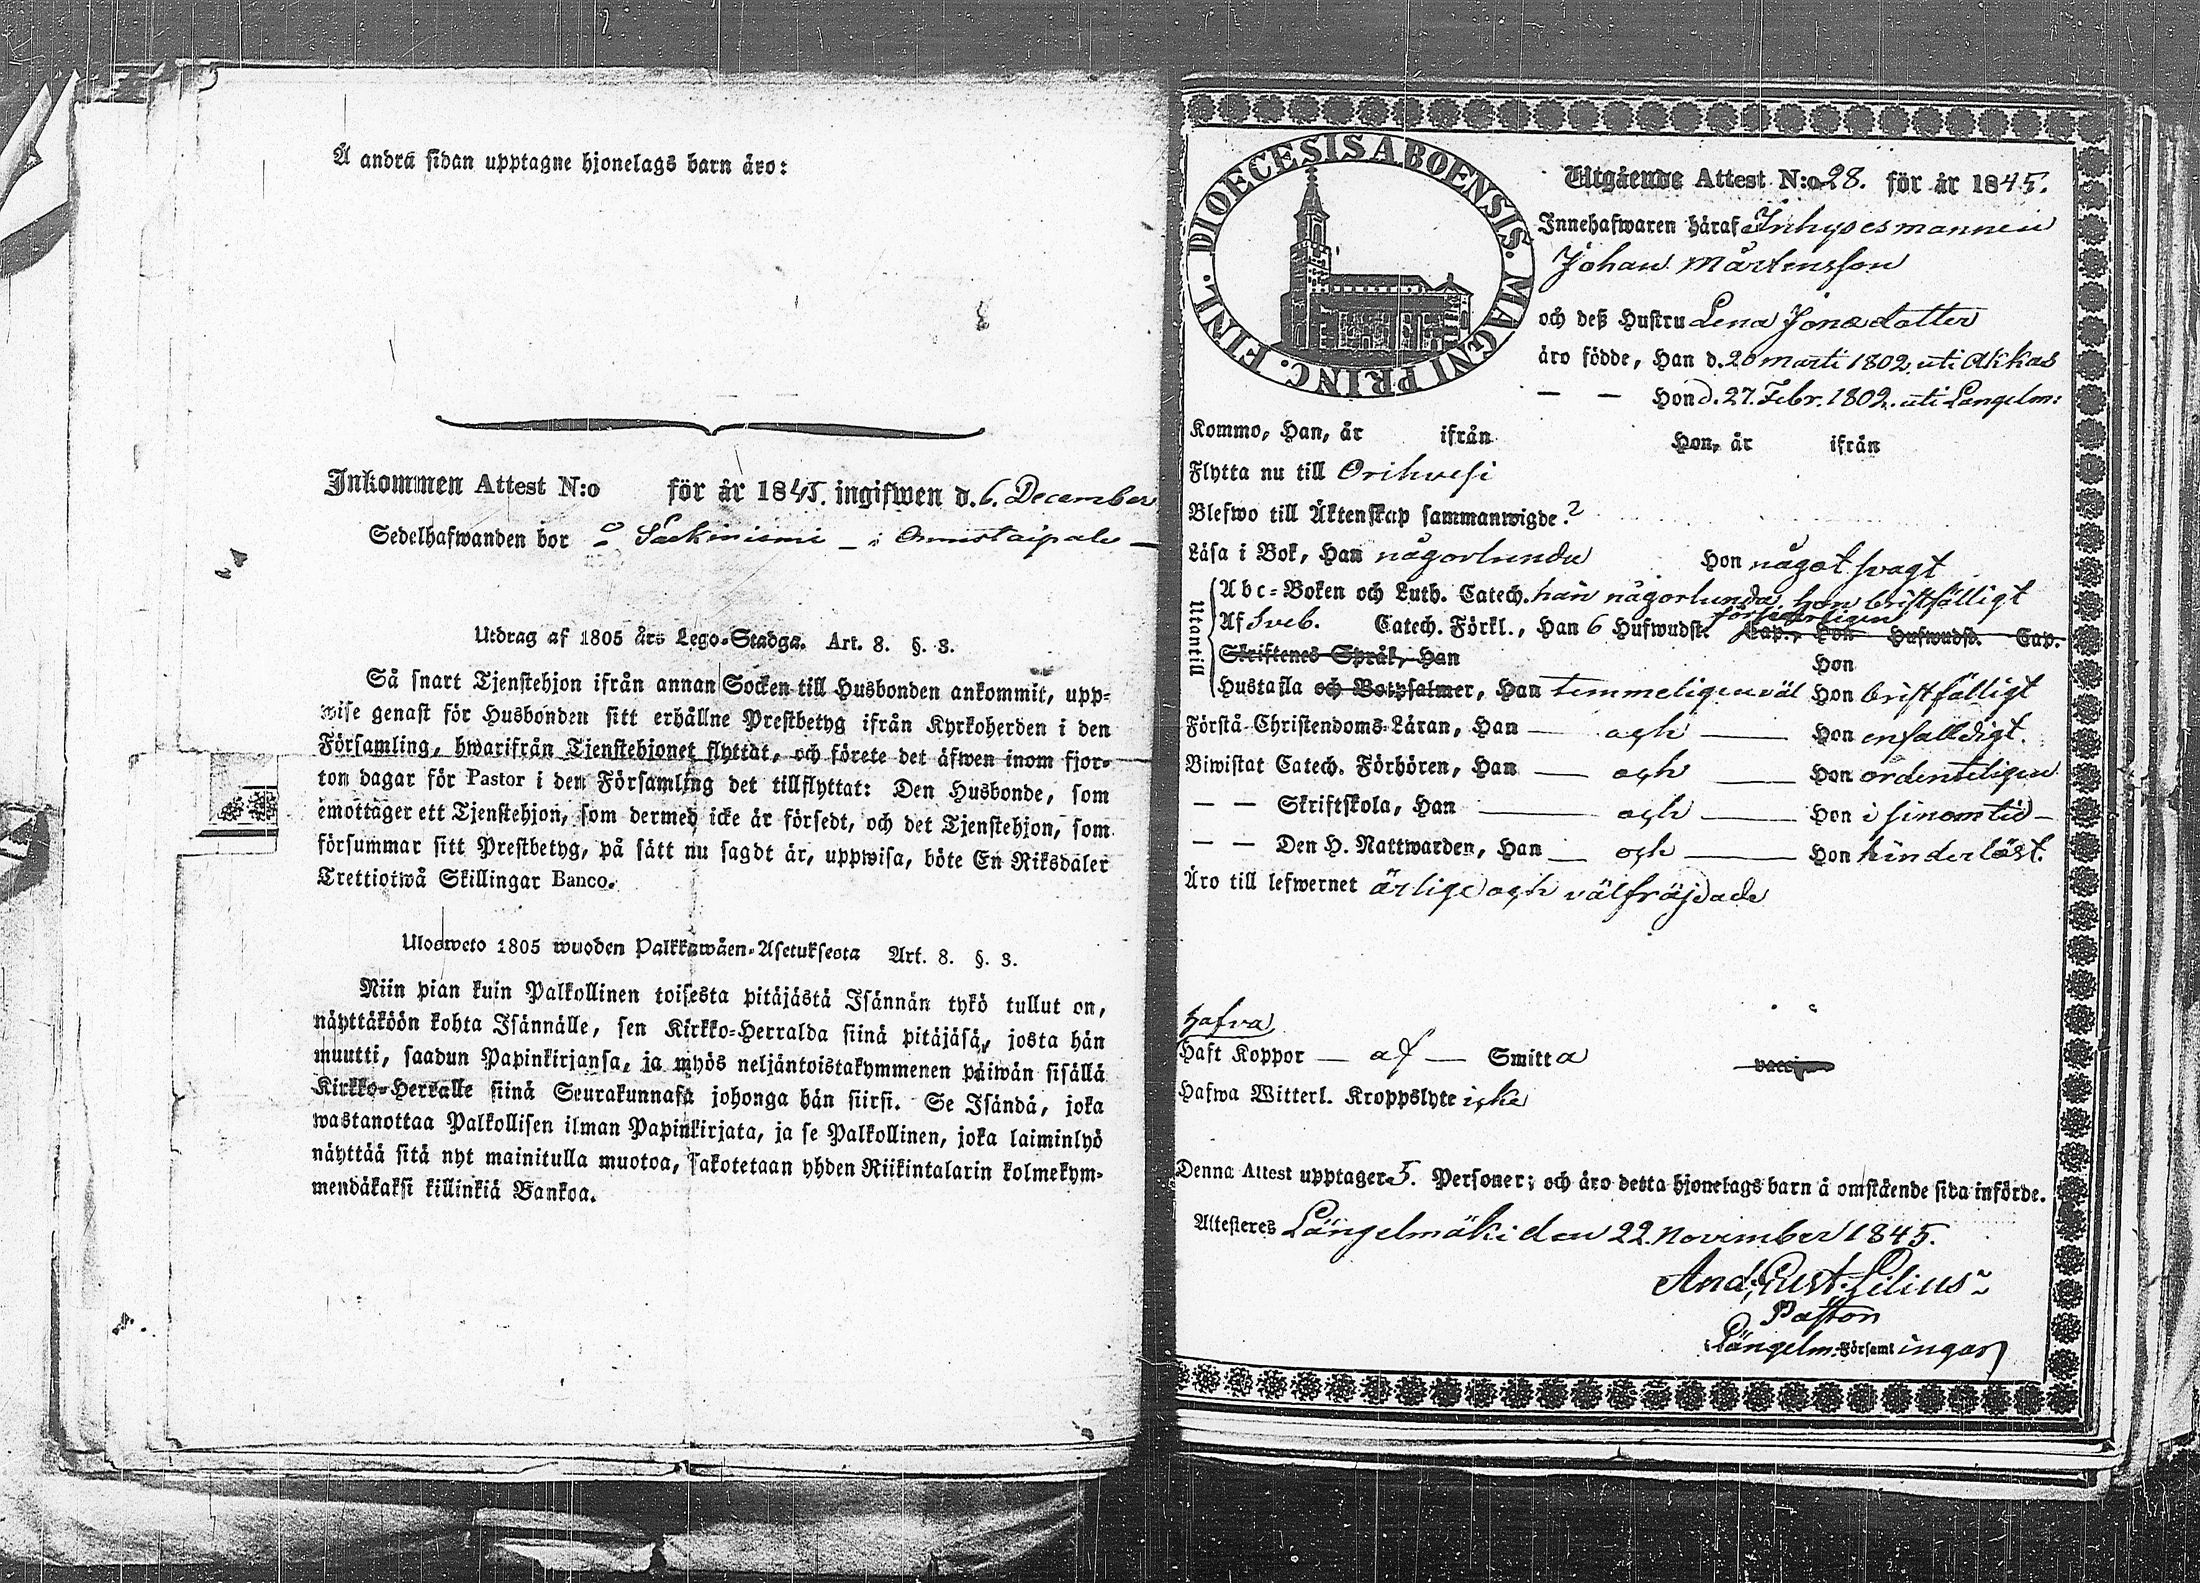 Å andra sidan upptagne hjonelags barn äro:
Inkommen Attest N:o för år 1845. ingifwen d. 6. December
Sedelhafwanden bor å Säckiniemi – i Onnistaipale –
Utdrag af 1805 års Lego-Stadga. Art. 8. §. 3.
Så snart Tjenstehjon ifrån annan Socken till Husbonden ankommit, upp-
wise genast för Husbonden sitt erhållne Prestbetyg ifrån Kyrkoherden i den
Församling, hwarifrån Tjenstehjonet flyttat, och förete det äfwen inom fjor-
ton dagar för Pastor i den Församling det tillflyttat: Den Husbonde, som
emottager ett Tjenstehjon, som dermed icke är försedt, och det Tjenstehjon, som
försummar sitt Prestbetyg, på sätt nu sagdt är, uppwisa, böte En Riksdaler
Trettiotwå Skillingar Banco.
Ulosweto 1805 wuoden Palkkawäen-Asetuksesta Art. 8. §. 3.
Niin pian kuin Palkollinen toisesta pitäjästä Isännän tykö tullut on,
näyttäköön kohta Isännälle, sen Kirkko-Herralda siinä pitäjäsä, josta hän
muutti, saadun Papinkirjansa, ja myös neljäntoistakymmenen päiwän sisällä
Kirkko-Herralle siinä Seurakunnasa johonga hän siirsi. Se Isändä, joka
wastanottaa Palkollisen ilman Papinkirjata, ja se Palkollinen, joka laiminlyö
näyttää sitä nyt mainitulla muotoa, sakotetaan yhden Riikintalarin kolmekym-
mendäkaksi killinkiä Bankoa.
DIOECESIS ABOENSIS. MAGNI PRINC. FINL.
Utgående Attest N:o 28. för år 1845.
Innehafwaren häraf Inhysesmannen
Johan Mårtensson
och deß Hustru Lena Jonædotter
äro födde, Han d. 20 Marti 1802. uti Akkas
— — Hon d. 27. Febr. 1802. uti Längelm:
Kommo, Han, år ifrån Hon, år ifrån
Flytta nu till Orihvesi
Blefwo till Äktenskap sammanwigde ?
Läsa i Bok, Han någorlunda Hon något svagt
Utantill
Abc-Boken och Luth. Catech. han någorlunda, hon bristfälligt
Af Sveb. Catech. Förkl., Han 6 Hufwudst. Cap., Hon Hufwudst. Cap.
Skriftenes Språk, Han Hon
Hustafla och Botpsalmer, Han temmeligen väl Hon bristfälligt
Förstå Christendoms-Läran, Han — och — Hon enfalldigt.
Biwistat Catech. Förhören, Han — och — Hon ordenteligen
— — Skriftskola, Han — och — Hon i sinom tid –
— — Den H. Nattwarden, Han — och — Hon hinderlöst.
Äro till lefwernet ärlige och välfräjdade
Hafva
Haft Koppor — af — Smitta vacc
Hafwa Witterl. Kroppslyte icke
Denna Attest upptager 5. Personer; och äro detta hjonelags barn å omstående sida införde.
Attesteres Längelmäki den 22. November 1845.
And. Gust. Lilius
Pastor
Längelm: Församlingar